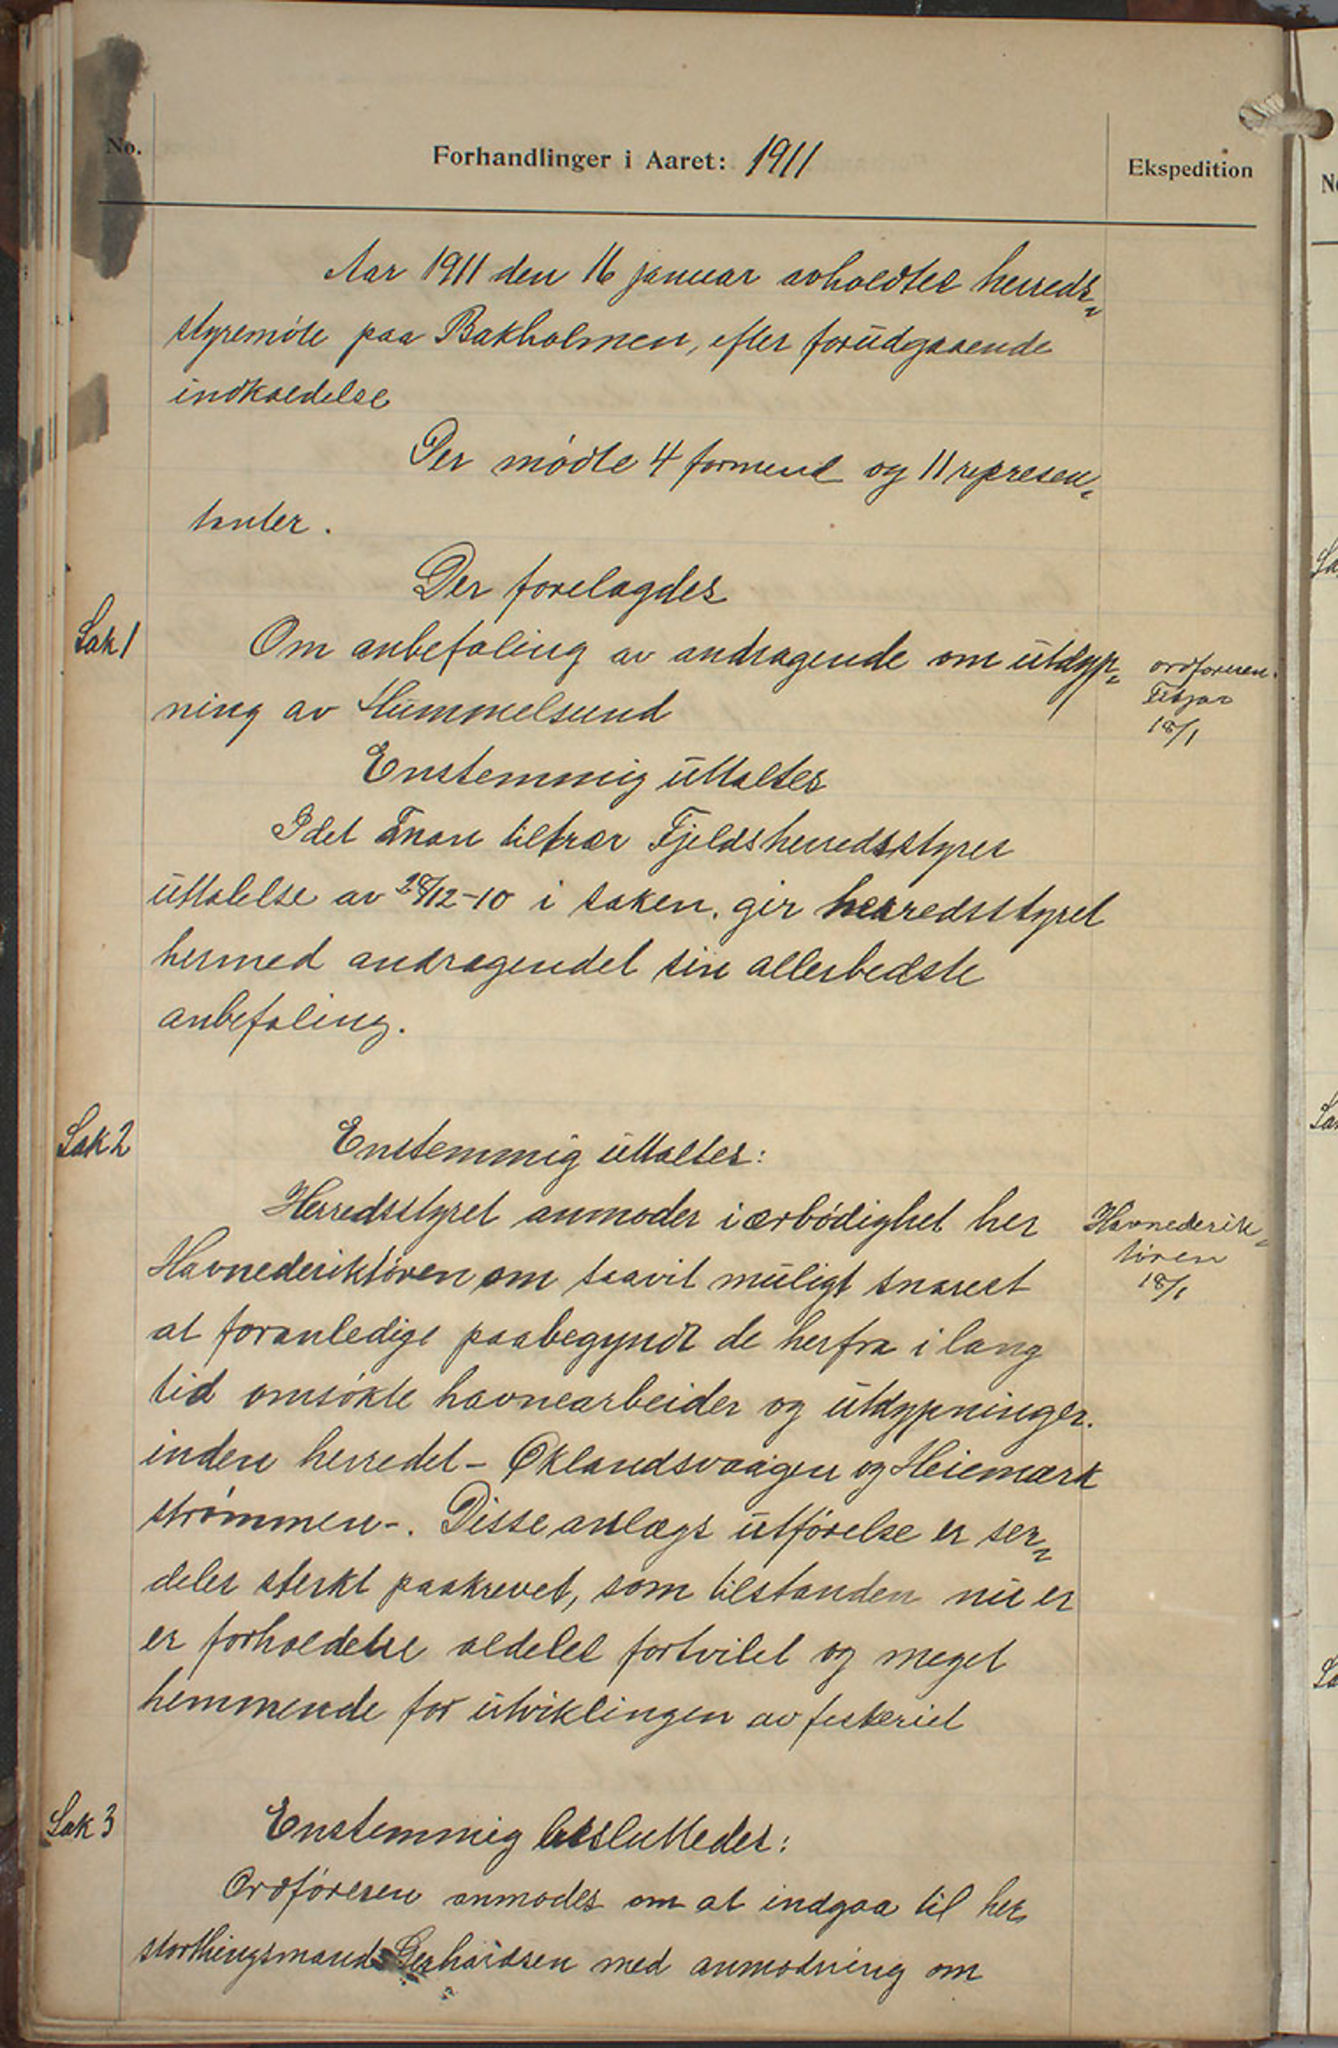 No.
Forhandlinger i Aaret: 1911
Ekspedition
Aar 1911 den 16 januar avholdtes herreds„
styremøte paa Bakholmen, efter forudgaaende
indkaldelse
Der mødte 4 formend og 11 represen„
tanter.
Der forelagdes
Sak 1
Om anbefaling av andragende om utdyp„
ordføreren.
Fitjar
18/1
ning av Hummelsund
Enstemmig uttaltes
Idet man tiltrær Fjeldsherredsstyres
uttalelse av 28/12-10 i saken. gir herredsstyret
hermed andragendet sin allerbedste
anbefaling.
Sak 2
Enstemmig uttaltes:
Herredsstyret anmoder i ærbødighet her
Havnederik„
tøren
18/1
Havnederiktøren om saavit muligt snarest
at foranledige paabegyndt de herfra i lang
tid omsøkte havnearbeider og utdypninger.
inden herredet - Øklandsvaagen og Heiemærk
strømmen -. Disse anlægs utførelse er ser„
deles sterkt paakrevet, som tilstanden nu er
er forholdene aldeles fortvilet og meget
hemmende for utviklingen av fiskeriet
Sak 3
Enstemmig besluttedes:
Ordføreren anmodes om at indgaa til her
storthingsmand Gerhardsen med anmodning om